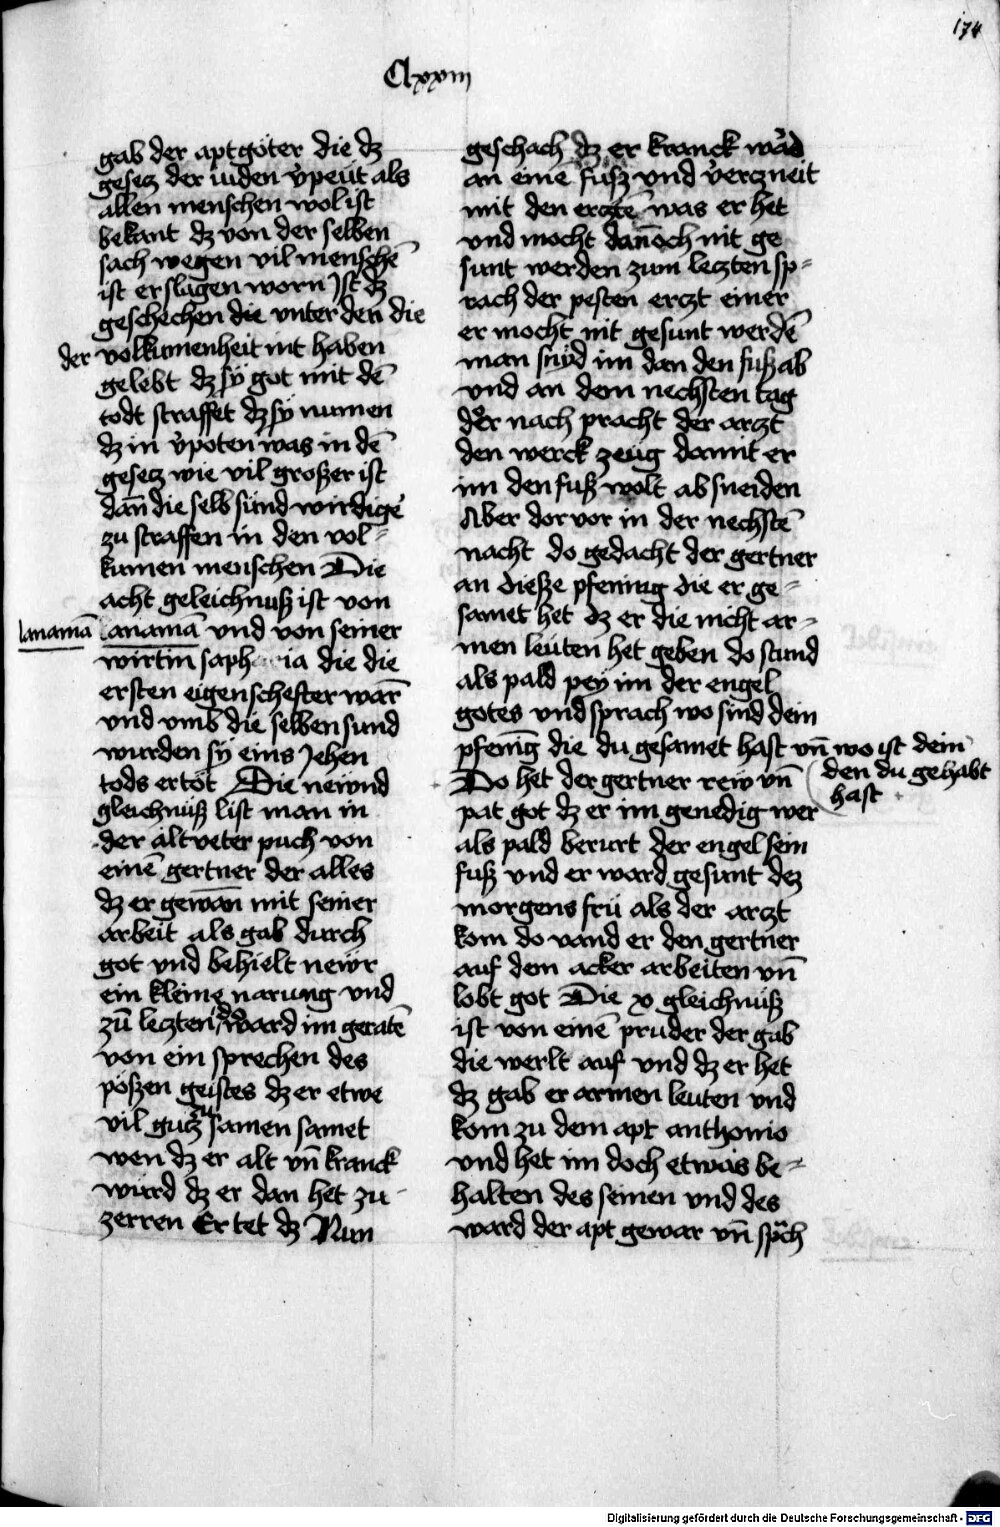 174
Clxxiii
gab der aptgöter die dz
gesecz der iuden v̓peüt als
allen menschen wol ist
bekant dz von der selben
sach wegen vil menschē
ist erslagen worn Ist dz
geschechen die vnter den die
der volkumenheit nit haben
gelebt dz sÿ got mit dē
todt straffet dz sÿ numen
dz in v̓poten was in dē
gesecz wie vil großer ist
dan̄ die selb sünd wirdigē
zu straffen in den vol=
kumen menschen Die
acht geleichnuß ist von
lanamā anamā vnd von seiner
wirtin saph ria die die
ersten eigenschefter warn̄
vnd vmb die selben sund
wurden sÿ eins Jehen
tods ertöt Die newnd
gleichnüß list man in
der altveter puch von
einē gertner der alles
dz er gewan̄ mit seiner
arbeit als gab durch
got vnd behielt newr
ein kleine narung vnd
zū leczten ward im geratē
von ein sprechen des
pößen geistes dz er etwe
vil gucz zu samen samet
wen dz er alt vn̄ kranck
würd dz er dan het zu
zerren Er tet dz Nun
geschach dz er kranck wa̓d
an eine fusz vnd v̓erczneit
mit den erczte was er het
vnd mocht dan̄och nit ge
sunt werden zum leczten sp=
rach der pesten erczt einer
er mocht nit gesunt werdē
man snÿd im dan den fuß ab
vnd an dem nechsten tag
der nach pracht der arczt
den werck zeüg damit er
im den fuß wolt absneiden
Aber dor vor in der nechstē
nacht do gedacht der gertner
an dieße pfening die er ge=
samet het dz er die nicht ar=
men leüten het geben do stund
als pald peÿ im der engel
gotes vnd sprach wo sind dein
pfenīg die du gesamet hast vn̄ wo ist dein
den du gehabt
hast
Do het der gertner rew vn̄
pat got dz er im genedig wer
als pald berurt der engel sein
fuß vnd er ward gesunt dez
morgens frü als der arczt
kom do vand er den gertner
auf dem acker arbeiten vn̄
lobt got Die x gleichnüß
ist von einē pruder der gab
die werlt auf vnd dz er het
dz gab er armen leuten vnd
kom zu dem apt anthonio
vnd het im doch etwas be=
halten des seinen vnd des
ward der apt gewar vn̄ sprach
Digitalisierung gefördert durch die Deutsche Forschungsgemeinschaft - DFG